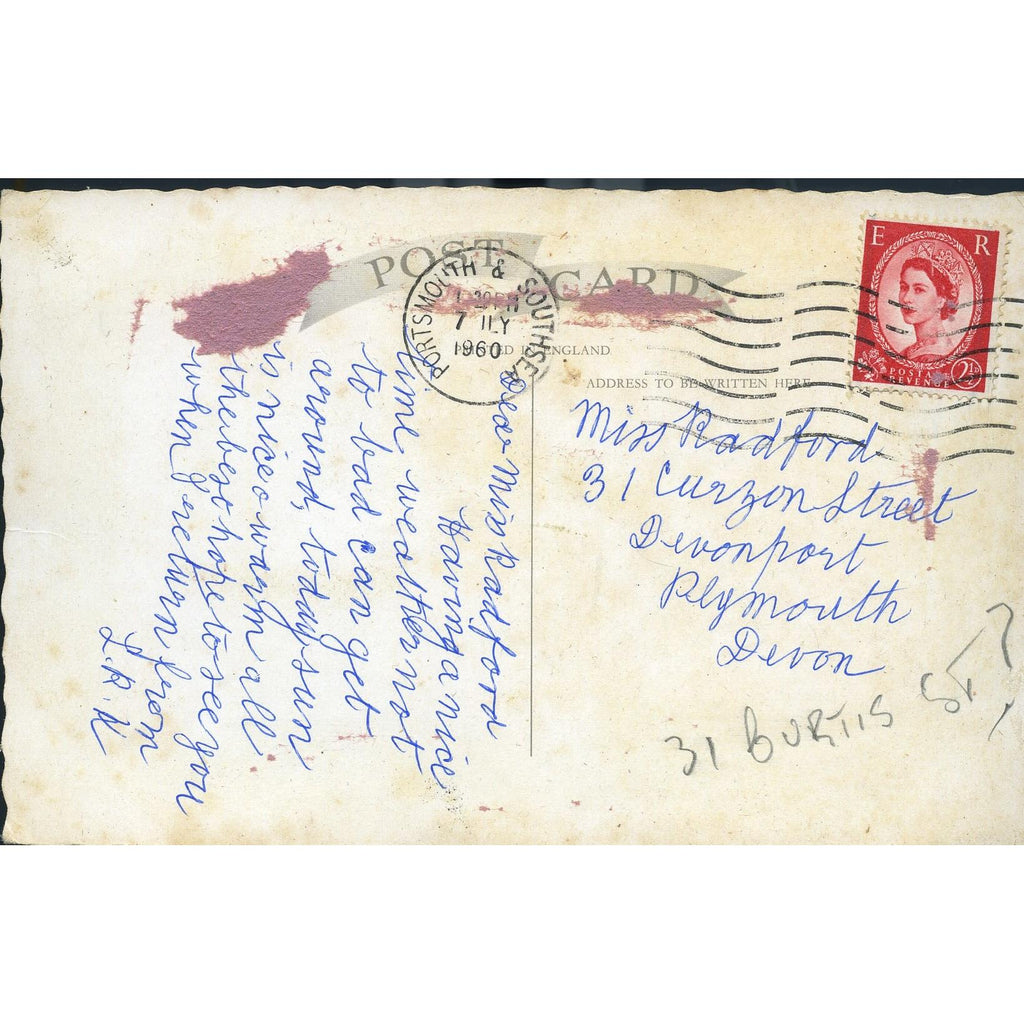 POST CARD
PORTSMOUTH & SOUTHSEA
7 JLY
1960
PRINTED IN ENGLAND
ADDRESS TO BE WRITTEN HERE
E R
POSTAGE
REVENUE
2½D
Dear Miss Radford
Having a nice
time weather not
to bad can get
around, today sun
is nice & warm all
the best & hope to see you
when I return from
Miss Radford
31 Curzon Street
Devonport
Plymouth
Devon
31 CURTIS ST ?